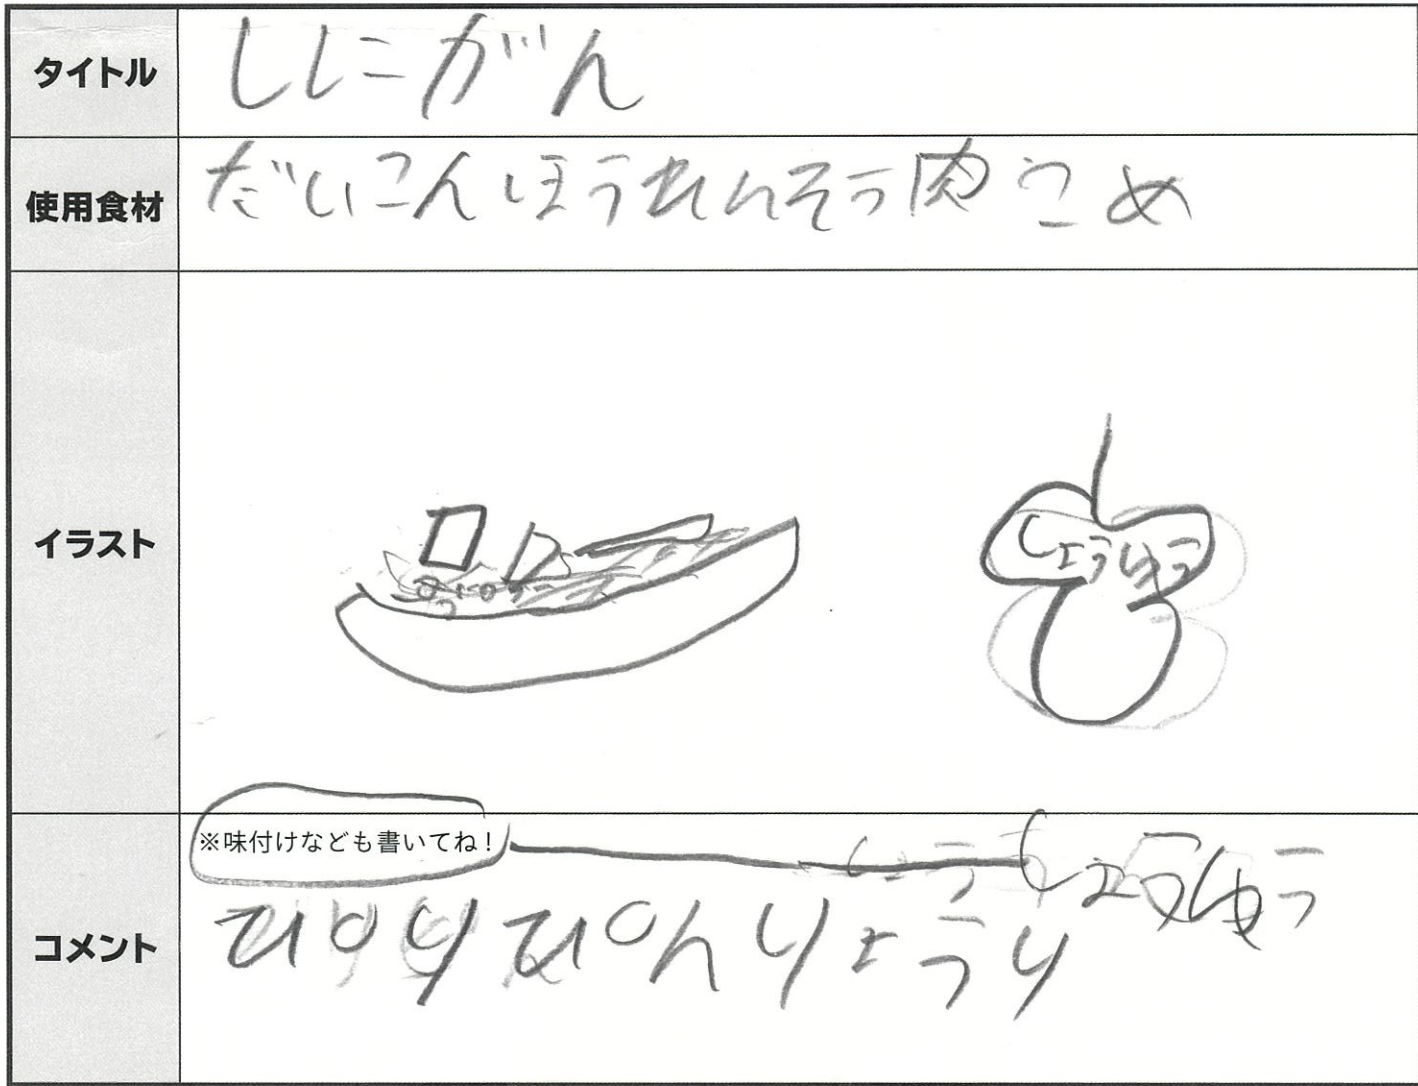 タイトル
しにがん
使用食材
だいこんほうれんそう肉こめ
イラスト
しょうゆう
コメント
※味付けなども書いてね！
しょうゆう
ひいりぴんりょうり